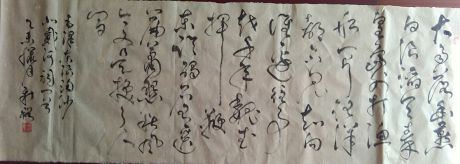 大雨落幽燕
白浪滔天秦
皇岛外打渔
船一片汪洋
都不见知向
谁边往事
越千年魏武
挥鞭
东临碣石有遗
篇萧瑟秋风
今又是换了人
间
毛泽东
北戴河词一首